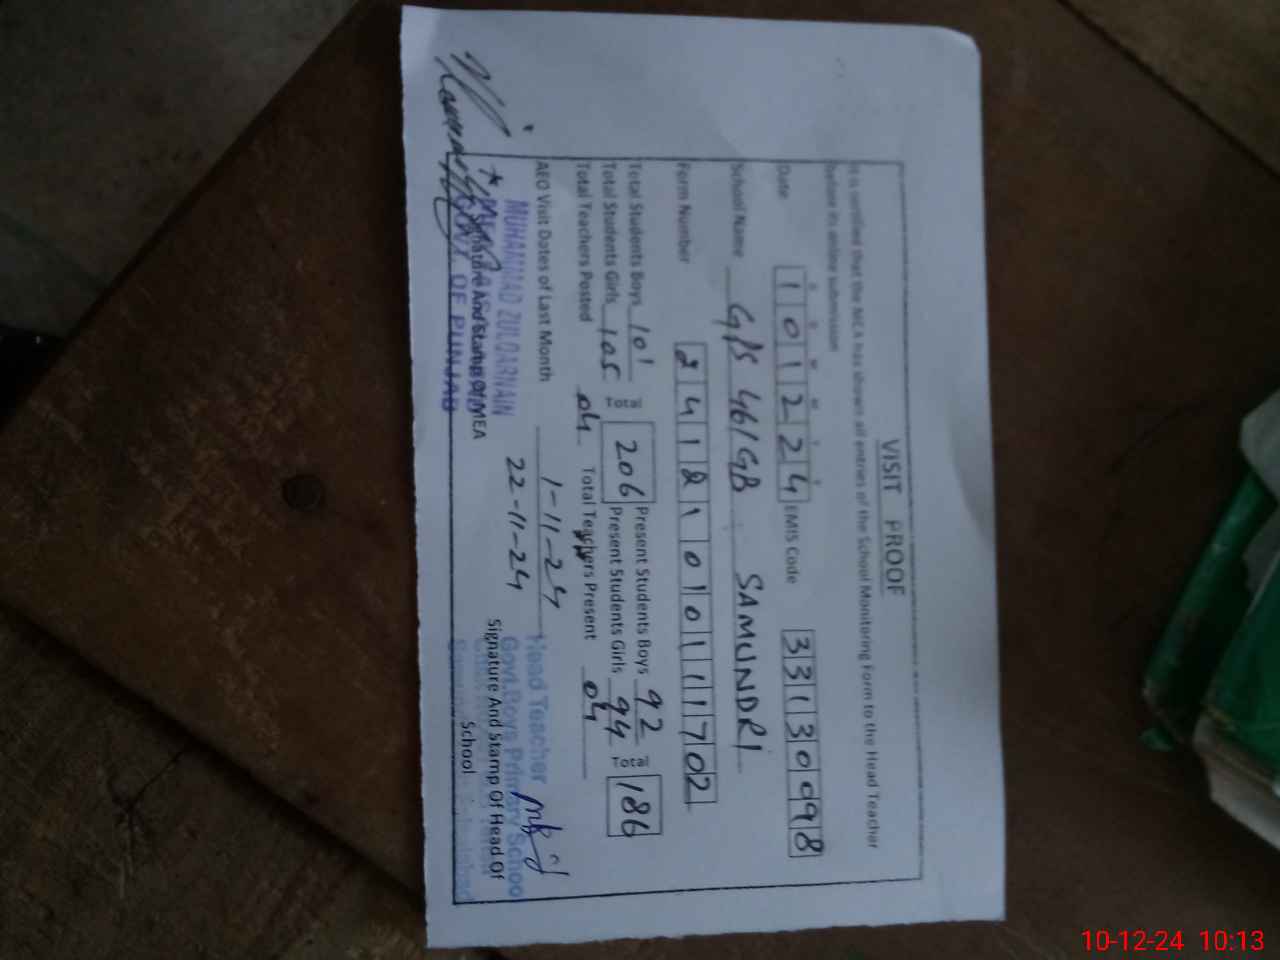 VISIT PROOF
It is certified that the MEA has shown all entries of the School Monitoring Form to the Head Teacher
before its online submission
Date 101224 EMIS Code 33130098
School Name G/S 461GB SAMUNDRI
Form Number
Total Students Boys 101 Total 206 Present Students Boys 92 Total 186
Total Students Girls 105 Present Students Girls 94
Total Teachers Posted 04 Total Teachers Present 04
AEO Visit Dates of Last Month 1-11-24
22-11-24
MUHAMMAD ZULQARNAIN
Signature And Stamp Of MEA
GOVT OF PUNJAB
Head Teacher
Govt.Boys Primary School
Signature And Stamp Of Head Of
School
10-12-24 10:13